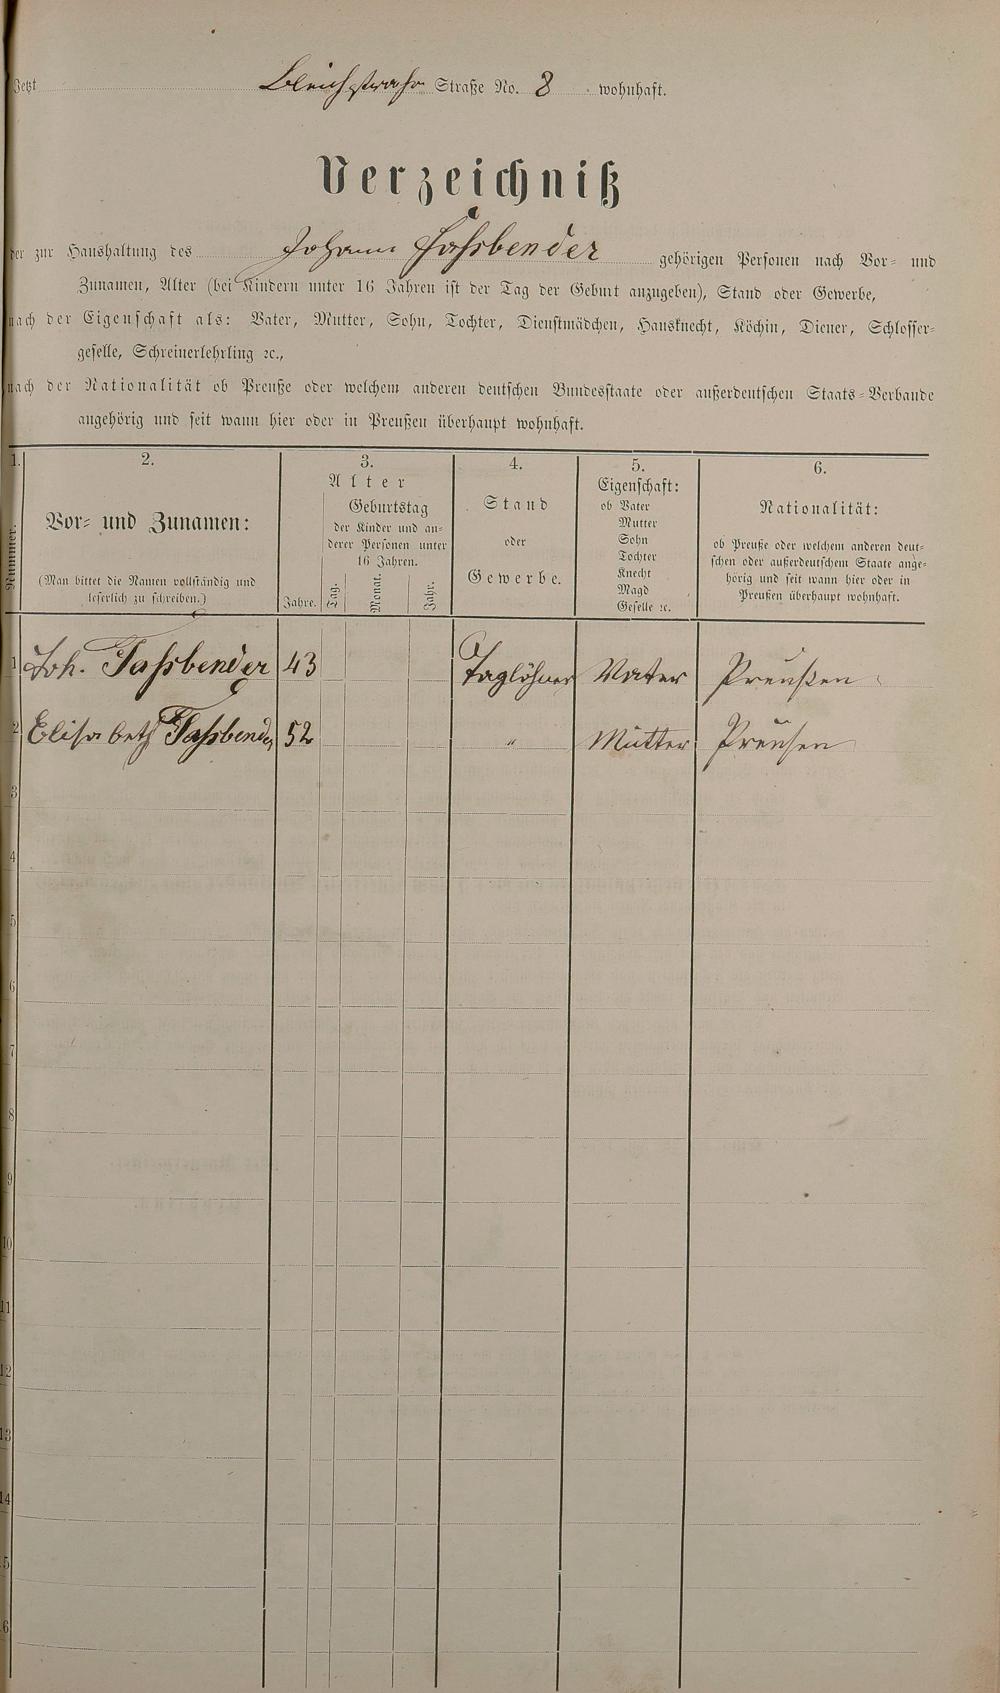 Jetzt Bleichstraße Straße No. 8 wohnhaft.
Verzeichniß
der zur Haushaltung des Johann Fassbender gehörigen Personen nach Vor- und
Zunamen, Alter (bei Kindern unter 16 Jahren ist der Tag der Geburt anzugeben), Stand oder Gewerbe,
nach der Eigenschaft als: Vater, Mutter, Sohn, Tochter, Dienstmädchen, Hausknecht, Köchin, Diener, Schlosser-
geselle, Schreinerlehrling ꝛc.,
nach der Nationalität ob Preuße oder welchem anderen deutschen Bundesstaate oder außerdeutschen Staats-Verbande
angehörig und seit wann hier oder in Preußen überhaupt wohnhaft.
1. 2. 3. 4. 5. 6.
Nummer.
Vor- und Zunamen:
(Man bittet die Namen vollständig und
leserlich zu schreiben.)
Alter
Jahre.
Geburtstag
der Kinder und an-
derer Personen unter
16 Jahren.
Tag. Monat. Jahr.
Stand
oder
Gewerbe.
Eigenschaft:
ob Vater
Mutter
Sohn
Tochter
Knecht
Magd
Geselle ꝛc.
Nationalität:
ob Preuße oder welchem anderen deut-
schen oder außerdeutschem Staate ange-
hörig und seit wann hier oder in
Preußen überhaupt wohnhaft.
1 Joh. Fassbender 43 Taglöhner Vater Preußen
2 Elisabeth Fassbender 52 " Mutter Preusen
3
4
5
6
7
8
9
10
11
12
13
14
5
6